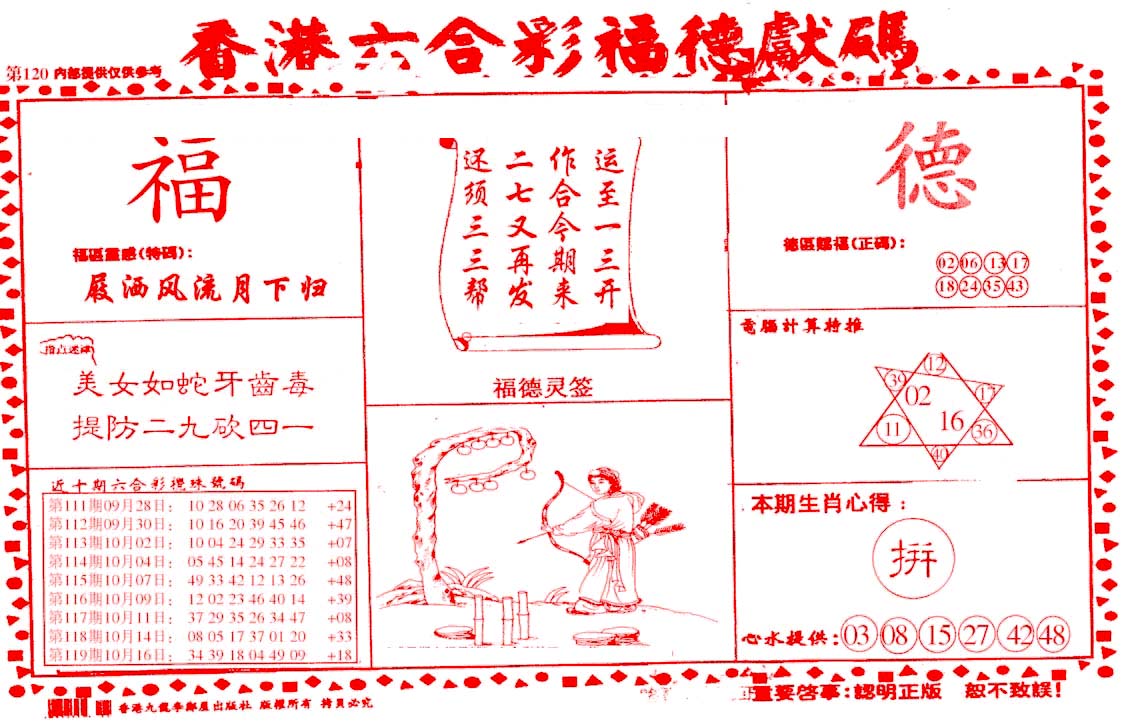 香港六合彩福德獻碼
第120 内部提供仅供参考
福
福區靈感(特碼)：
屐洒风流月下归
指点迷津
美女如蛇牙齒毒
提防二九砍四一
近十期六合彩攪珠號碼
第111期09月28日： 10 28 06 35 26 12 +24
第112期09月30日： 10 16 20 39 45 46 +47
第113期10月02日： 10 04 24 29 33 35 +07
第114期10月04日： 05 45 14 24 27 22 +08
第115期10月07日： 49 33 42 12 13 26 +48
第116期10月09日： 12 02 23 46 40 14 +39
第117期10月11日： 37 29 35 26 34 47 +08
第118期10月14日： 08 05 17 37 01 20 +33
第119期10月16日： 34 39 18 04 49 09 +18
运至一三开
作合今期来
二七又再发
还须三三帮
福德灵签
德
德區賜福(正碼)：
02 06 13 17
18 24 35 43
電腦計算特推
12
39 02 17
11 16 36
40
本期生肖心得：
拼
心水提供: 03 08 15 27 42 48
重要啓事:認明正版 恕不致誤!
香港九龍 出版社 版權所有 拷貝必究